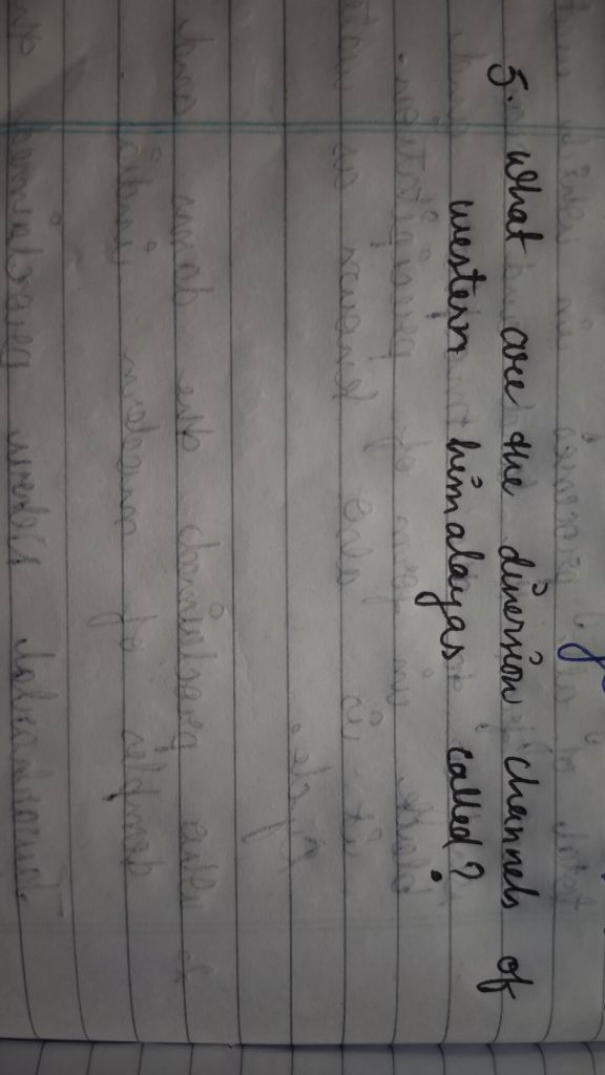 5. What are the diversion channels of
western himalayas called?